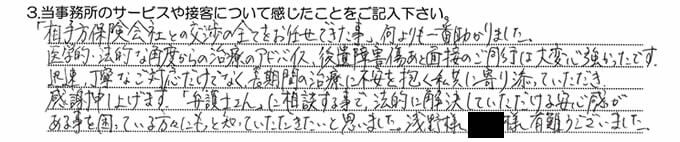 3.当事務所のサービスや接客について感じたことをご記入下さい。
「相手方保険会社との交渉の全てをお任せできた事」何よりも一番助かりました。
医学的・法的な角度からの治療のアドバイス、後遺障害傷あと面接のご同行は大変心強かったです。
迅速、丁寧なご対応だけでなく長期間の治療に不安を抱く私共に寄り添っていただき
感謝申し上げます。「弁護士さん」に相談する事で、法的に解決していただける安心感が
ある事を困っている方々にもっと知っていただきたいと思いました。浅野様 様有難うございました。